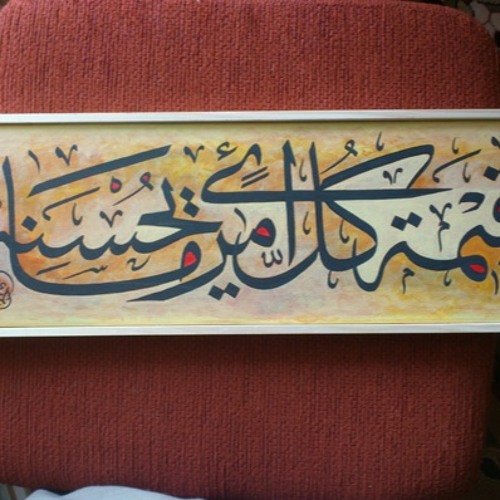 قيمة كل امرئ ما يحسنه